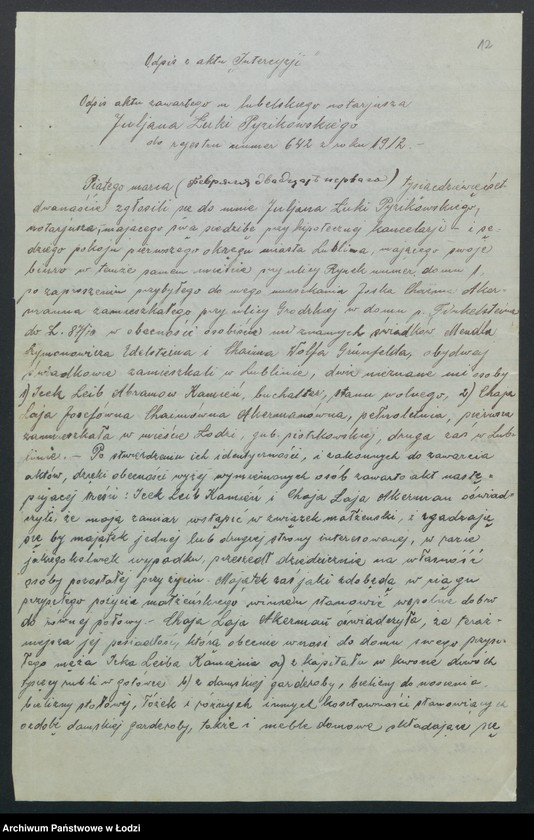 12
Odpis z aktu "Intercyzji"
Odpis aktu zawartego u lubelskiego notarjusza
Juljana Łuki Pyrikowskiego
do rejestru numer 642 z roku 1912. -
Piątego marca (февраля двадцать первого) tysiącdziewięćset
dwanaście zgłosili się do mnie Juljana Łuki Pyrikowskiego,
notarjusza, mającego swą siedzibę przy hipotecznej kancelarji - i sę-
dziego pokoju pierwszego okręgu miasta Lublina, mającego swoje
biuro w temże samem mieście przy ulicy Rynek numer domu 1,
po zaproszeniu przybyłego do mego mieszkania Joska Chaima Aker-
manna zamieszkałego przy ulicy Grodzkiej w domu p. Finkelsteina
do L. 87/10 w obecności osobiście mi znanych świadków Mendla
Szymonowicza Edelsteina i Chaima Wolfa Grünfelda, obydwaj
świadkowie zamieszkali w Lublinie, dwie nieznane mi osoby
1) Icek Leib Abramow Kamień, buchalter, stanu wolnego, 2) Chaja
Łaja Josefówna Chaimowna Akermanówna, pełnoletnia, pierwszy
zamieszkała w mieście Łodzi, gub. piotrkowskiej, druga zaś w Lub-
linie. - Po stwierdzeniu ich identyczności, i zakonnych do zawarcia
aktów, dzięki obecności wyżej wymienionych osób zawarto akt nastę-
pującej treści: Icek Leib Kamień i Chaja Łaja Akerman oświad-
czyli, że mają zamiar wstąpić w związek małżeński, i zgadzają
się by majątek jednej lub drugiej strony interesowanej, w razie
jakiegokolwiek wypadku, przeszedł dziedzicznie na własność
osoby pozostałej przy życiu. Majątek zaś jaki zdobędą w ciągu
przyszłego pożycia małżeńskiego winien stanowić wspólne dobro
do równej połowy. - Chaja Łaja Akerman oświadczyła, że teraź-
niejsza jej posiadłość, którą obecnie wnosi do domu swego przysz-
łego męża Icka Leiba Kamienia a) z kapitału w kwocie dwóch
tysięcy rubli w gotówce b) z damskiej garderoby, bielizny do noszenia,
bielizny stołowej, łóżek i różnych innych kosztowności stanowiących
ozdobę damskiej garderoby, także i meble domowe składające się
Archiwum Państwowe w Łodzi